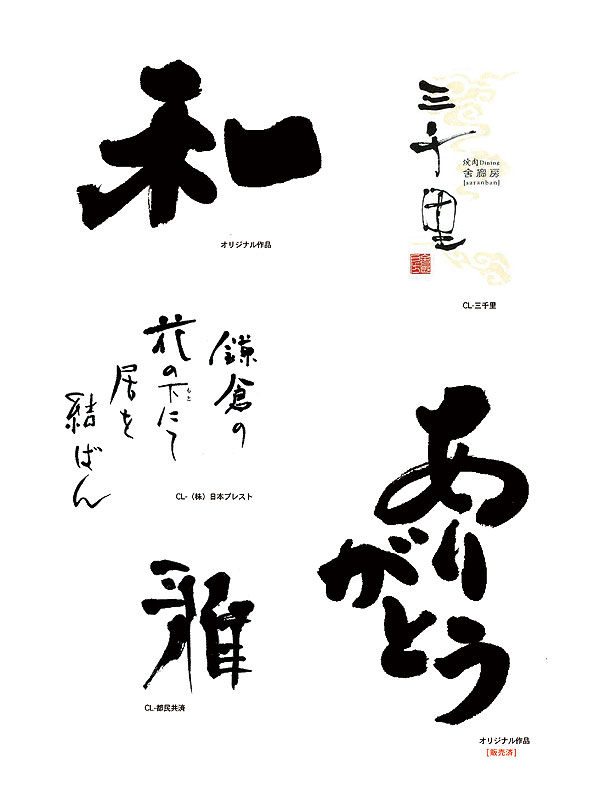 和
オリジナル作品
三千里
焼肉Dining
舍廊房
[saranban]
CL-三千里
鎌倉の
花の下にて
もと
居を
結ばん
CL-（株）日本ブレスト
雅
CL-都民共済
あり
がとう
オリジナル作品
[販売済]